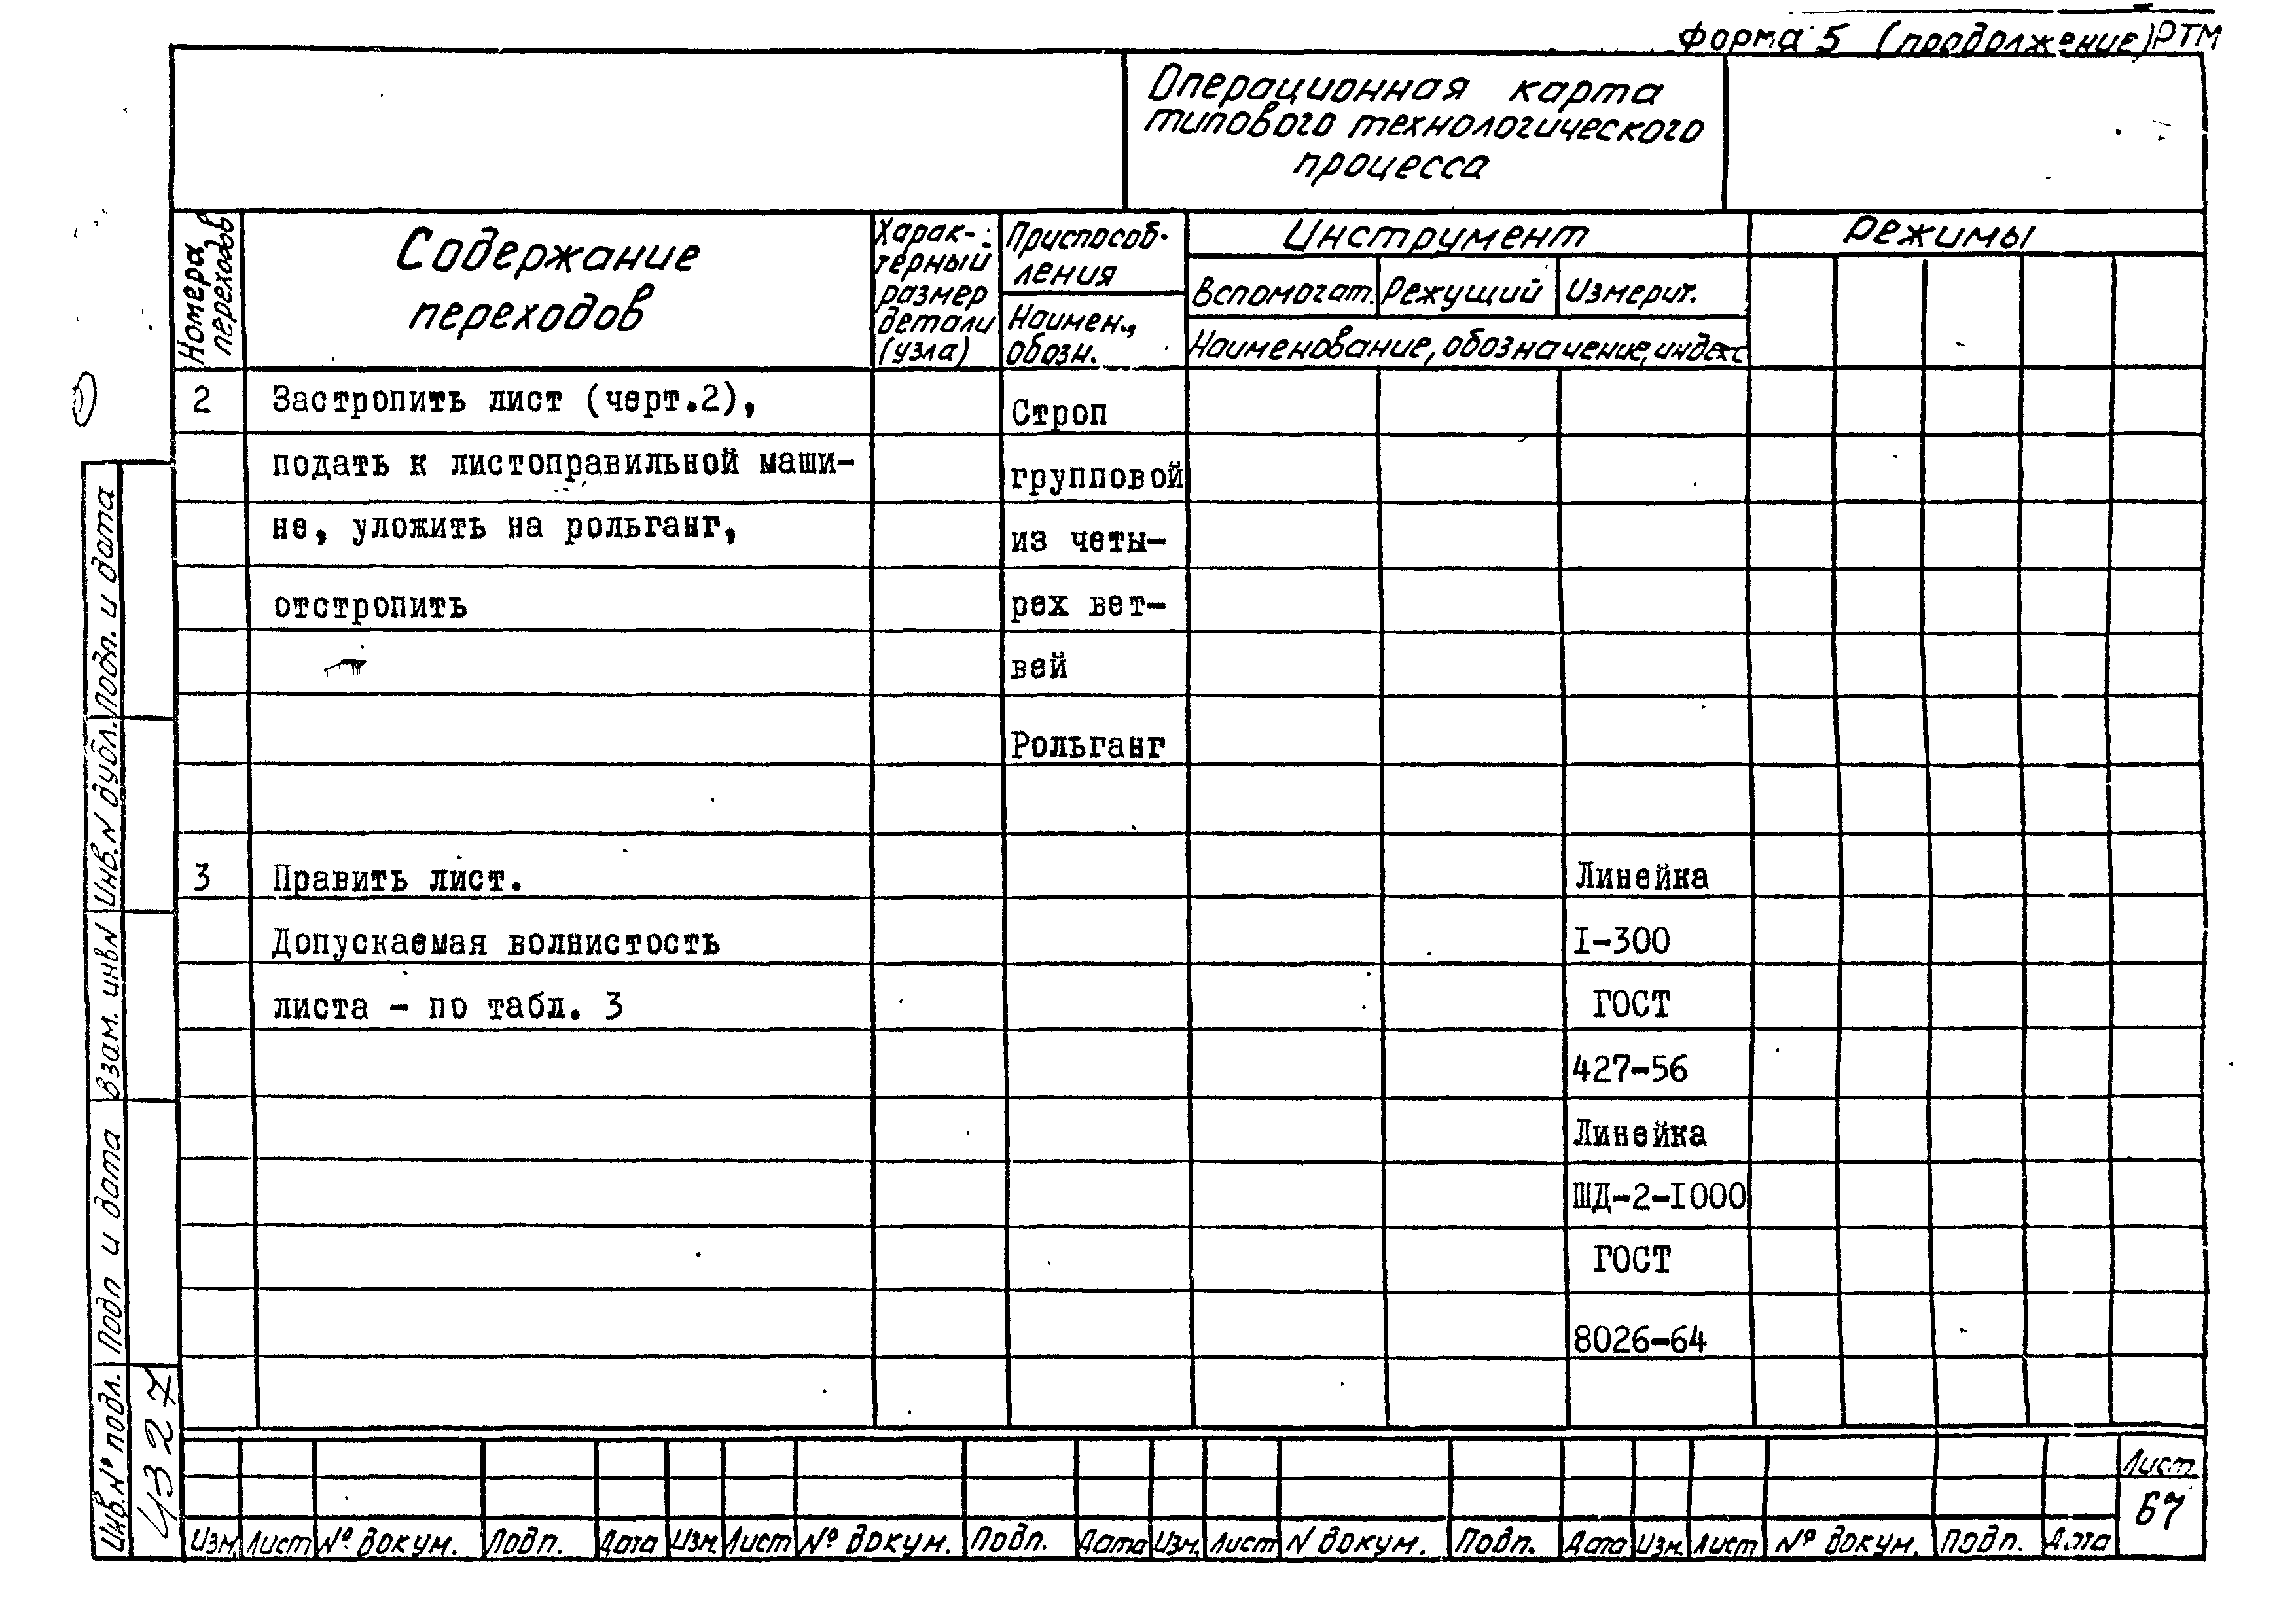 форма 5 (продолжение) РТМ
Операционная карта
типового технологического
процесса
Номера
переходов
Содержание
переходов
Харак-
терный
размер
детали
(узла)
Приспособ-
ления
Наимен.,
обозн.
Инструмент
Вспомогат. Режущий Измерит.
Наименование, обозначение, индекс
Режимы
2 Застропить лист (черт.2),
подать к листоправильной маши-
не, уложить на рольганг,
отстропить
Строп
групповой
из четы-
рех вет-
вей
Рольганг
3 Править лист.
Допускаемая волнистость
листа - по табл. 3
Линейка
I-300
ГОСТ
427-56
Линейка
ШД-2-I000
ГОСТ
8026-64
Подп. и дата
Инв.N дубл.
Взам. инвN
Подп и дата
Инв.N° подл.
4327
Изм Лист № докум. Подп. Дата Изм. Лист № докум. Подп. Дата Изм. Лист N докум. Подп. Дата Изм. Лист № докум. Подп. Дата
Лист
67